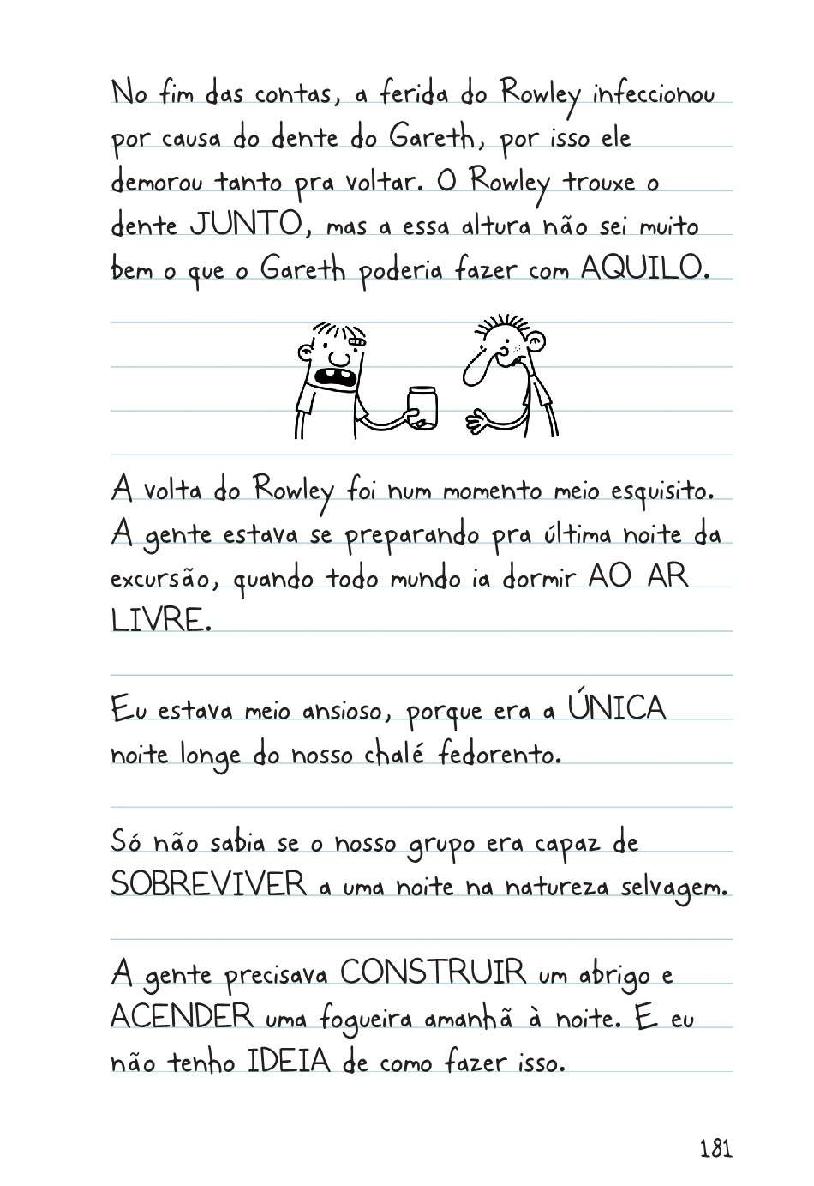 No fim das contas, a ferida do Rowley infeccionou
por causa do dente do Gareth, por isso ele
demorou tanto pra voltar. O Rowley trouxe o
dente JUNTO, mas a essa altura não sei muito
bem o que o Gareth poderia fazer com AQUILO.
A volta do Rowley foi num momento meio esquisito.
A gente estava se preparando pra última noite da
excursão, quando todo mundo ia dormir AO AR
LIVRE.
Eu estava meio ansioso, porque era a ÚNICA
noite longe do nosso chalé fedorento.
Só não sabia se o nosso grupo era capaz de
SOBREVIVER a uma noite na natureza selvagem.
A gente precisava CONSTRUIR um abrigo e
ACENDER uma fogueira amanhã à noite. E eu
não tenho IDEIA de como fazer isso.
181